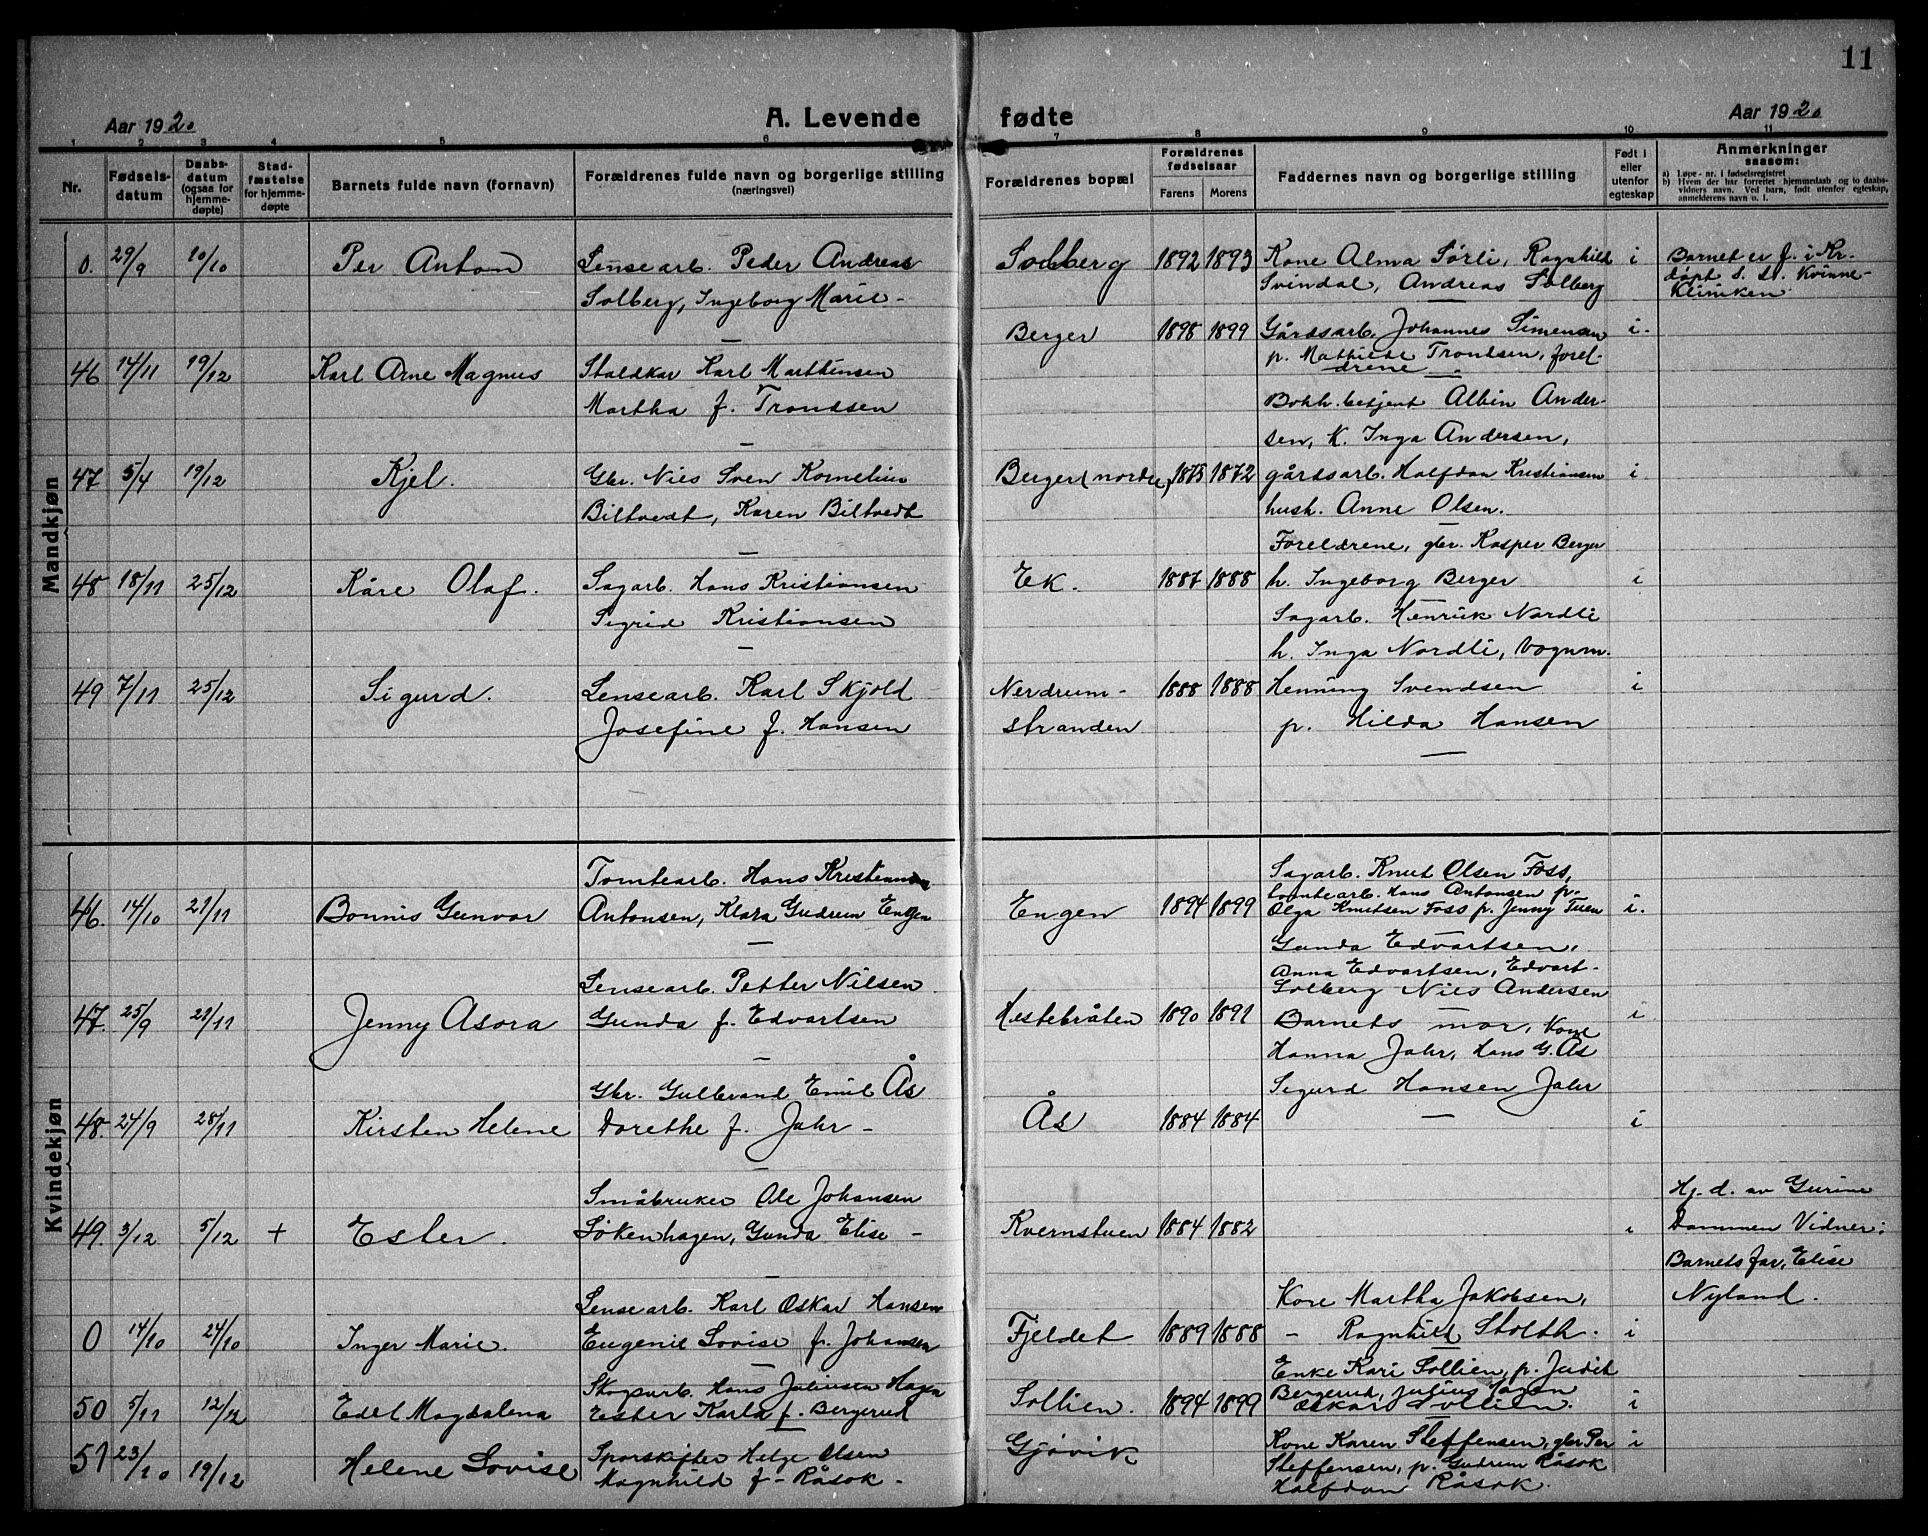 11
Aar 1920
A. Levende fødte
Aar 1920
1 2 3 4 5 6 7 8 9 10 11
Nr.
Fødsels-
datum
Daabs-
datum
(ogsaa for
hjemme-
døpte)
Stad-
fæstelse
for hjemme-
døpte
Barnets fulde navn (fornavn)
Forældrenes fulde navn og borgerlige stilling
(næringsvei)
Forældrenes bopæl
Forældrenes
fødselsaar
Farens Morens
Faddernes navn og borgerlige stilling
Født i
eller
utenfor
egteskap
Anmerkninger
saasom:
a) Løpe-nr. i fødselsregistret
b) Hvem der har forrettet hjemmedaab og to daabs-
vidners navn. Ved barn, født utenfor egteskap,
anmelderens navn o. l.
Mandkjøn
0. 29/9 10/10 Per Anton
Lensearb. Peder Andreas
Solberg, Ingeborg Marie -
Solberg 1892 1893
Kone Alma Sørli, Ragnhild
Svindal, Andreas Solberg
i
Barnet er f. i Kr.
døpt s. st. Kvinne-
Kliniken
46 14/11 19/12 Karl Arne Magnus
Staldkar Karl Marthinsen
Martha f. Trondsen
Berger 1898 1899
Gårdsarb. Johannes Simensen
p. Mathilde Trondsen, forel-
drene
i.
47 5/4 19/12 Kjel.
Gbr. Nils Sven Kornelius
Biltvedt, Karen Biltvedt
Berger (nordre) 1875 1872
Bokh.betjent Albin Ander-
sen, K. Inga Andersen,
gårdsarb. Halfdan Kristiansen
hush. Anne Olsen.
i
48 18/11 25/12 Kåre Olaf.
Sagarb. Hans Kristiansen
Sigrid Kristiansen
Ek. 1887 1888
Foreldrene, gbr. Kasper Berger
h. Ingeborg Berger
i
49 7/11 25/12 Sigurd.
Lensearb. Karl Skjold
Josefine f. Hansen
Nerdrum-
stranden
1888 1888
Sagarb. Henrik Nordli
h. Inga Nordli, Vognm.
Henning Svendsen
p. Hilda Hansen
i
Kvindekjøn
46. 14/10 21/11 Bonnis Gunvor
Tomtearb. Hans Kristian
Antonsen, Klara Gudrun Engen
Engen 1894 1899
Sagarb. Knut Olsen Foss,
tomtearb. Hans Antonsen p.
Olga Knutsen Foss p. Jenny Tuen
i.
47. 25/9 21/11 Jenny Asora
Lensearb. Petter Nilsen
Gunda f. Edvartsen
Hestebråten 1890 1891
Gunda Edvartsen,
Anna Edvartsen, Edvart
Solberg Nils Andersen
i
48. 24/9 28/11 Kirsten Helene
Gbr. Gulbrand Emil Ås
Dorethe f. Jahr -
Ås 1884 1884
Barnets mor, Kone
Hanna Jahr, Hans G. Ås
Sigurd Hansen Jahr
i
49. 3/12 5/12 + Ester.
Småbruker Ole Johansen
Løkenhagen, Gunda Elise -
Kvernstuen 1884 1882
i
Hj. d. av Gurine
Dammen Vidner:
Barnets far, Elise
Nyland.
0 14/10 24/10 Inger Marie.
Lensearb. Karl Oskar Hansen
Eugenie Lovise f. Johansen
Fjeldet 1889 1888
Kone Martha Jakobsen,
- Ragnhild Stolth.
i
50 5/11 12/12 Edel Magdalena
Skogsarb. Hans Juliussen Hagen
Ester Karla f. Bergerud
Sollien. 1894 1899
Enke Kari Sollien, p. Judit
Bergerud, Julius Hagen
Oskar Sollien.
i
51 23/10 19/12 Helene Lovise
Sporskifter Helge Olsen
Magnhild f - Råsok -
Gjøvik
Kone Karen Steffensen, gbr Per
Steffensen, p. Gudrun Råsok
Halfdan Råsok.
i